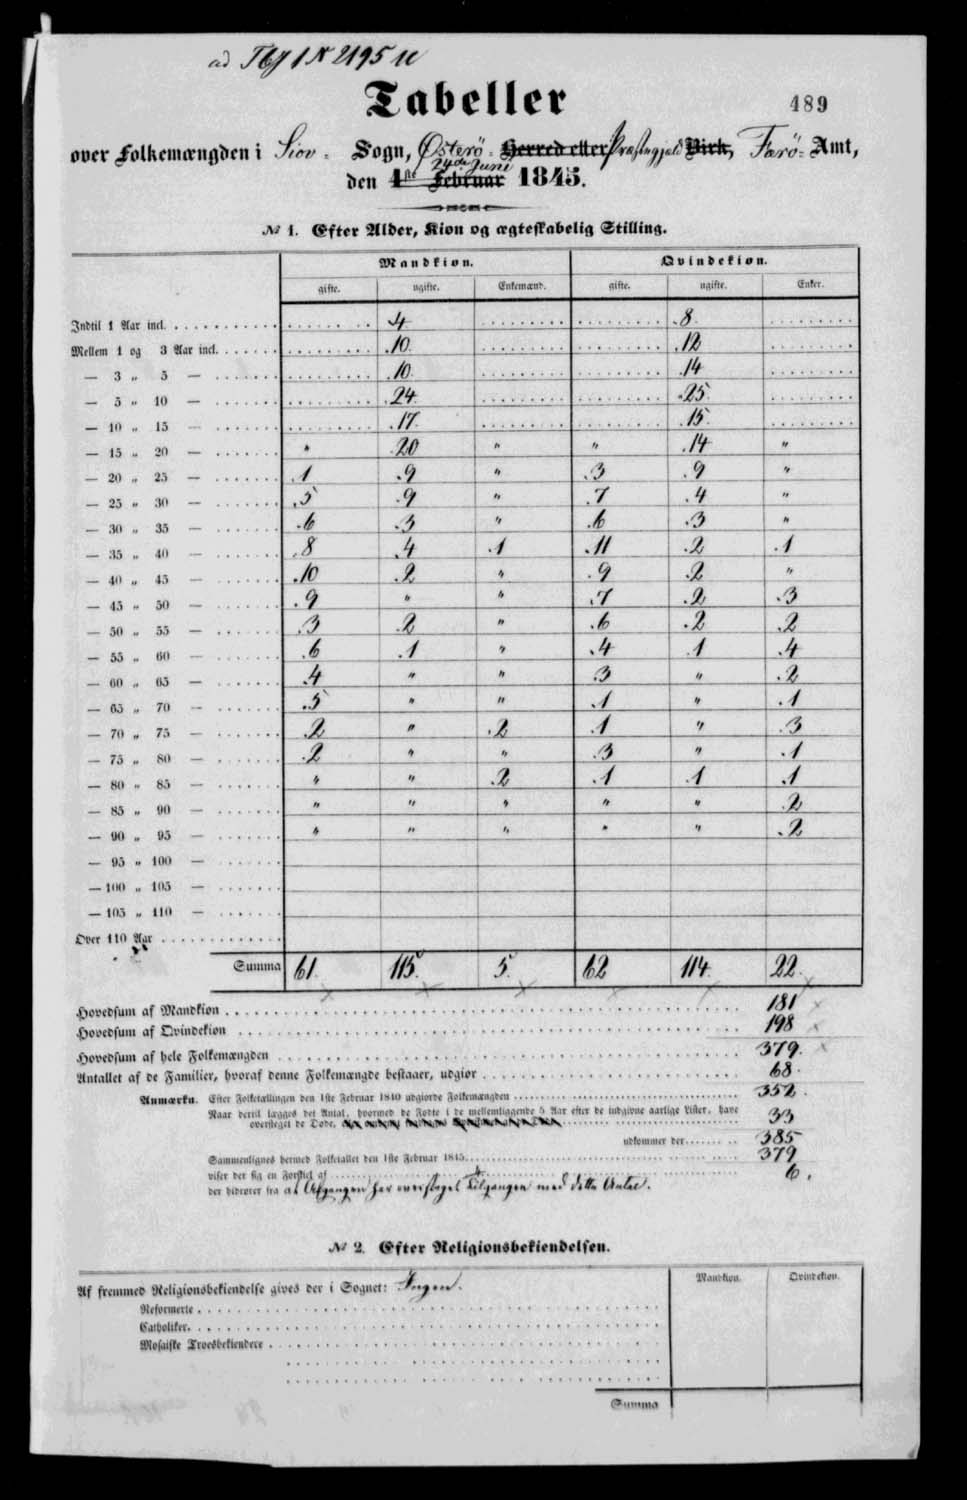 ad Tbg 1 N 2195 11
Tabeller
489
over Folkemængden i Siov- Sogn, Østerö- Herred etter Præstegjeld Birk, Færö- Amt,
24de Juni
den 1ste Februar 1845.
№ 1. Efter Alder, Kion og ægteskabelig Stilling.
Mandkion. Qvindekion.
gifte. ugifte. Enkemænd. gifte. ugifte. Enker.
Indtil 1 Aar incl. 4 8
Mellem 1 og 3 Aar incl. 10 12
— 3 „ 5 — 10 14
— 5 „ 10 — 24 25
— 10 „ 15 — 17 15
— 15 „ 20 — " 20 " " 14 "
— 20 „ 25 — 1 9 " 3 9 "
— 25 „ 30 — 5 9 " 7 4 "
— 30 „ 35 — 6 3 " 6 3 "
— 35 „ 40 — 8 4 1 11 2 1
— 40 „ 45 — 10 2 " 9 2 "
— 45 „ 50 — 9 " " 7 2 3
— 50 „ 55 — 3 2 " 6 2 2
— 55 „ 60 — 6 1 " 4 1 4
— 60 „ 65 — 4 " " 3 " 2
— 65 „ 70 — 5 " " 1 " 1
— 70 „ 75 — 2 " 2 1 " 3
— 75 „ 80 — 2 " " 3 " 1
— 80 „ 85 — " " 2 1 1 1
— 85 „ 90 — " " " " " 2
— 90 „ 95 — " " " " " 2
— 95 „ 100 —
— 100 „ 105 —
— 105 „ 110 —
Over 110 Aar
Summa 61 115 5 62 114 22
Hovedsum af Mandkion 181
Hovedsum af Qvindekion 198
Hovedsum af hele Folkemængden 379
Antallet af de Familier, hvoraf denne Folkemængde bestaaer, udgiør 68
Anmærkn. Efter Folketællingen den 1ste Februar 1840 udgiorde Folkemængden 352
Naar dertil lægges det Antal, hvormed de Fødte i de mellemliggende 5 Aar efter de indgivne aarlige Lister, have
oversteget de Døde, 33
udkommer der 385
Sammenlignes hermed Folketallet den 1ste Februar 1845 379
viser der sig en Forskiel af 6.
der hidrører fra at Afgangen har oversteget Tilgangen med dette Antal.
№ 2. Efter Religionsbekiendelsen.
Mandkion. Qvindekion.
Af fremmed Religionsbekiendelse gives der i Sognet: Ingen.
Reformerte
Catholiker
Mosaiske Troesbekiendere
Summa